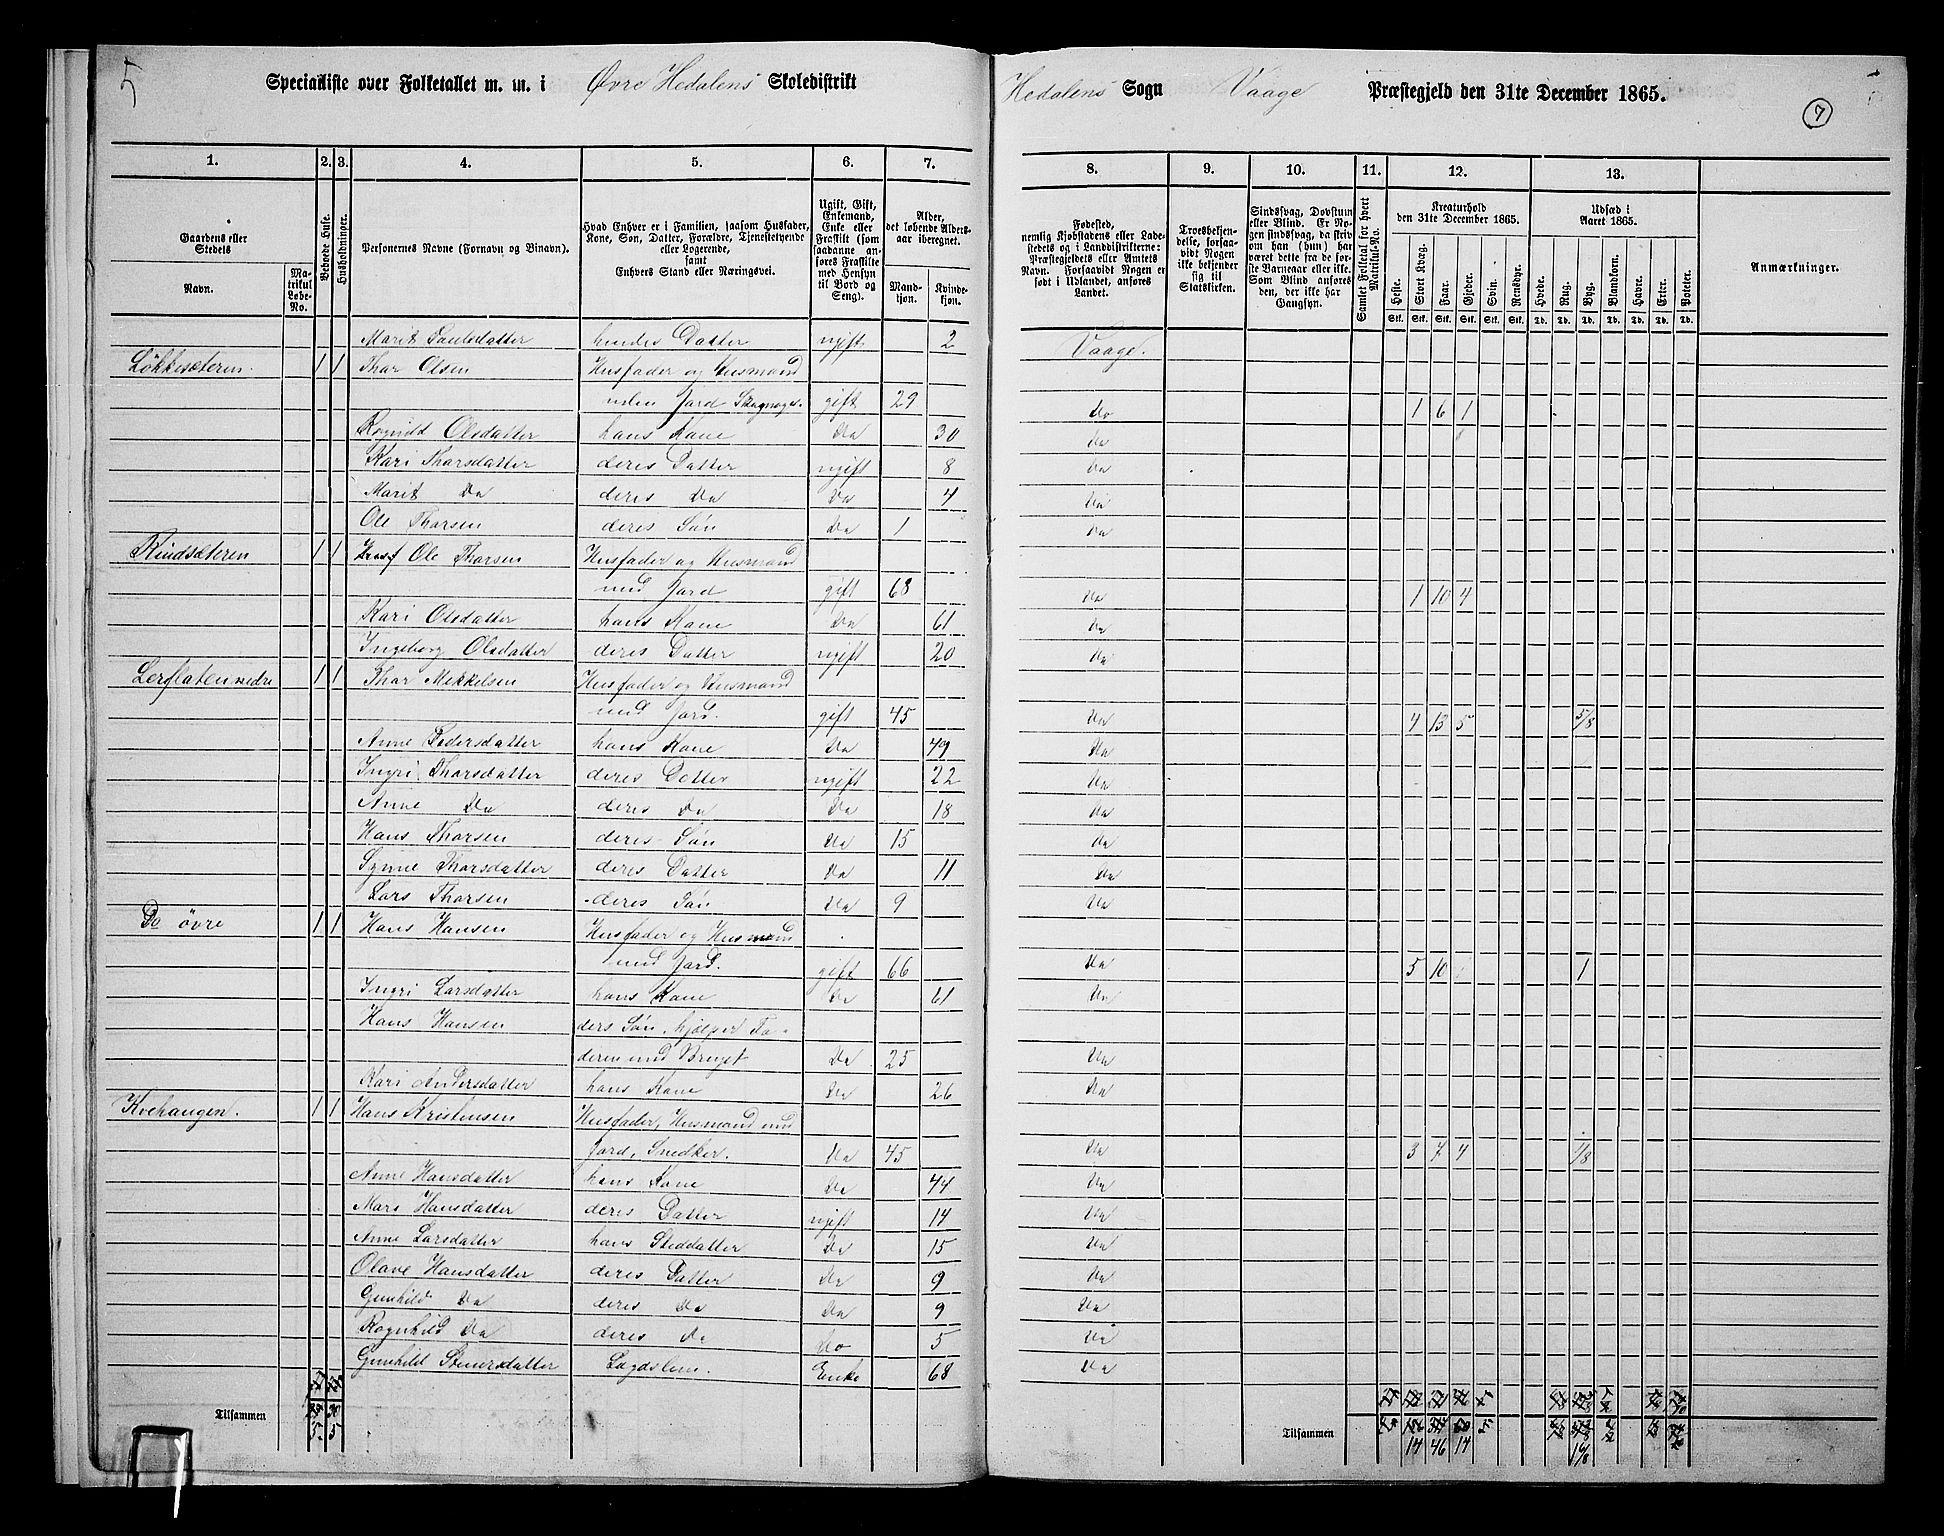 5
Specialliste over Folketallet m. m. i Øvre Hedalens Skoledistrikt
Hedalens Sogn Vaage Præstegjeld den 31te December 1865.
7
1. 2. 3. 4. 5. 6. 7. 8. 9. 10. 11. 12. 13.
Gaardens eller Stedets
Navn.
Matrikul Løbe-No.
Beboede Huse.
Husholdninger.
Personernes Navne (Fornavn og Binavn).
Hvad Enhver er i Familien, saasom Husfader, Kone, Søn, Datter, Forældre, Tjenestetyende eller Logerende, samt Enhvers Stand eller Næringsvei.
Ugift, Gift, Enkemand, Enke eller Fraskilt (som saadanne anføres Fraskilte med Hensyn til Bord og Seng).
Alder, det løbende Aldersaar iberegnet.
Mandkjøn. Kvindekjøn.
Fødested, nemlig Kjøbstadens eller Ladestedets og i Landdistrikterne: Præstegjeldets eller Amtets Navn. Forsaavidt Nogen er født i Udlandet, anføres Landet.
Troesbekjendelse, forsaavidt Nogen ikke bekjender sig til Statskirken.
Sindssvag, Døvstum eller Blind. Er Nogen sindssvag, da skriv om han (hun) har været dette fra de første Barneaar eller ikke. Som Blind anføres den, der ikke har Gangsyn.
Samlet Folketal for hvert Matrikul-No.
Kreaturhold den 31te December 1865.
Heste. Stort Kvæg. Faar. Gjeder. Svin. Rensdyr.
Udsæd i Aaret 1865.
Hvede. Rug. Byg. Blandkorn. Havre. Erter. Poteter.
Anmærkninger.
Marit Paulsdatter hendes Datter ugift 2 Vaage.
Løkkesæteren. 1 1 Thor Olsen Husfader og Husmand
uden Jord Skognoge. gift 29 Do 1 6 1
Rognild Olsdatter hans Kone Do 30 Do
Kari Thorsdatter deres Datter ugift 8 Do
Marit Do deres Do Do 4 Do
Ole Thorsen deres Søn Do 1 Do
Rindsæteren 1 1 Ole Thorsen Husfader og Husmand
med Jord gift 68 Do 1 10 4
Kari Olsdatter hans Kone Do 61 Do
Ingeborg Olsdatter deres Datter ugift 20 Do
Lerflaten nedre 1 1 Thor Mikkelsen Husfader og Husmand
med Jord. gift 45 Do 4 13 5 5/8
Anne Pedersdatter hans Kone Do 49 Do
Ingri Thorsdatter deres Datter ugift 22 Do
Anne Do deres Do Do 18 Do
Hans Thorsen deres Søn Do 15 Do
Synne Thorsdatter deres Datter Do 11 Do
Lars Thorsen deres Søn Do 9 Do
Do øvre 1 1 Hans Hansen Husfader og Husmand
med Jord. gift 66 Do 5 10 1
Ingri Larsdatter hans Kone Do 61 Do
Hans Hansen ders Søn, hjælper Fa-
deren med Bruget Do 25 Do
Kari Andersdatter hans Kone Do 26 Do
Kvehaugen. 1 1 Hans Kristensen Husfader, Husmand med
Jord, Snedker. Do 45 Do 3 7 4 1/8
Anne Hansdatter hans Kone Do 44 Do
Mari Hansdatter deres Datter ugift 14 Do
Anne Larsdatter hans Steddatter Do 15 Do
Olave Hansdatter deres Datter Do 9 Do
Gunhild Do deres Do Do 9 Do
Rognhild Do deres Do Do 5 Do
Gunhild Steinersdatter Lægdslem. Enke 68 Do
Tilsammen 5 5
Tilsammen 14 46 14